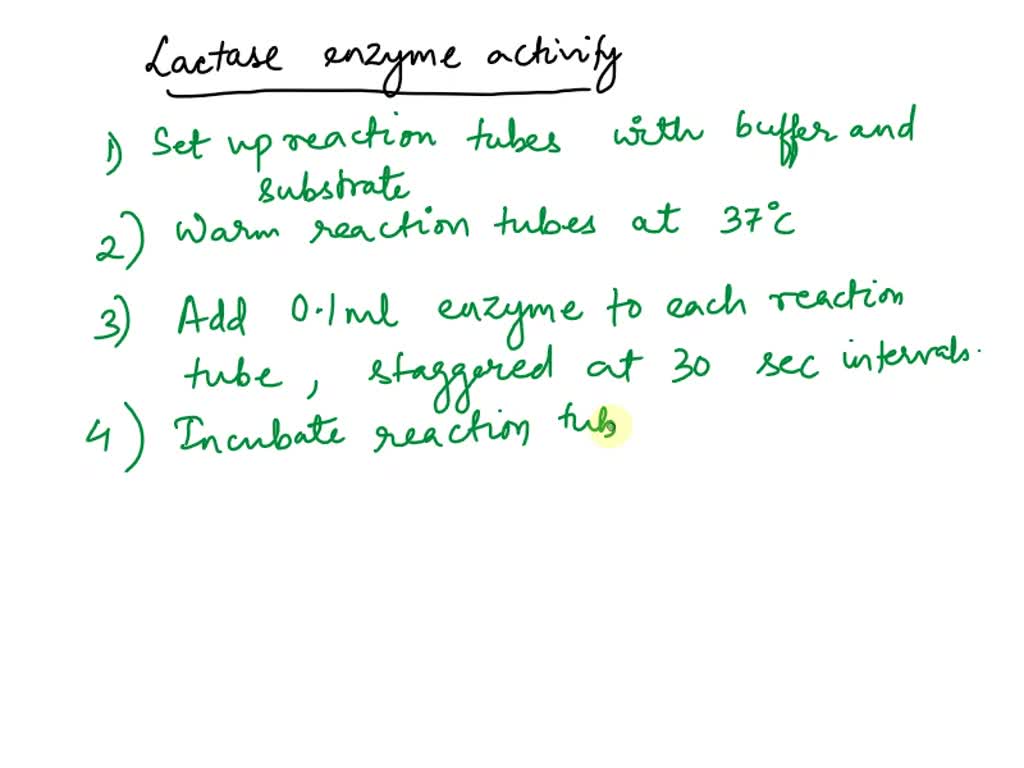 Lactase enzyme activity
1) Set up reaction tubes with buffer and
substrate
2) Warm reaction tubes at 37°C
3) Add 0.1ml enzyme to each reaction
tube, staggered at 30 sec intervals.
4) Incubate reaction tub